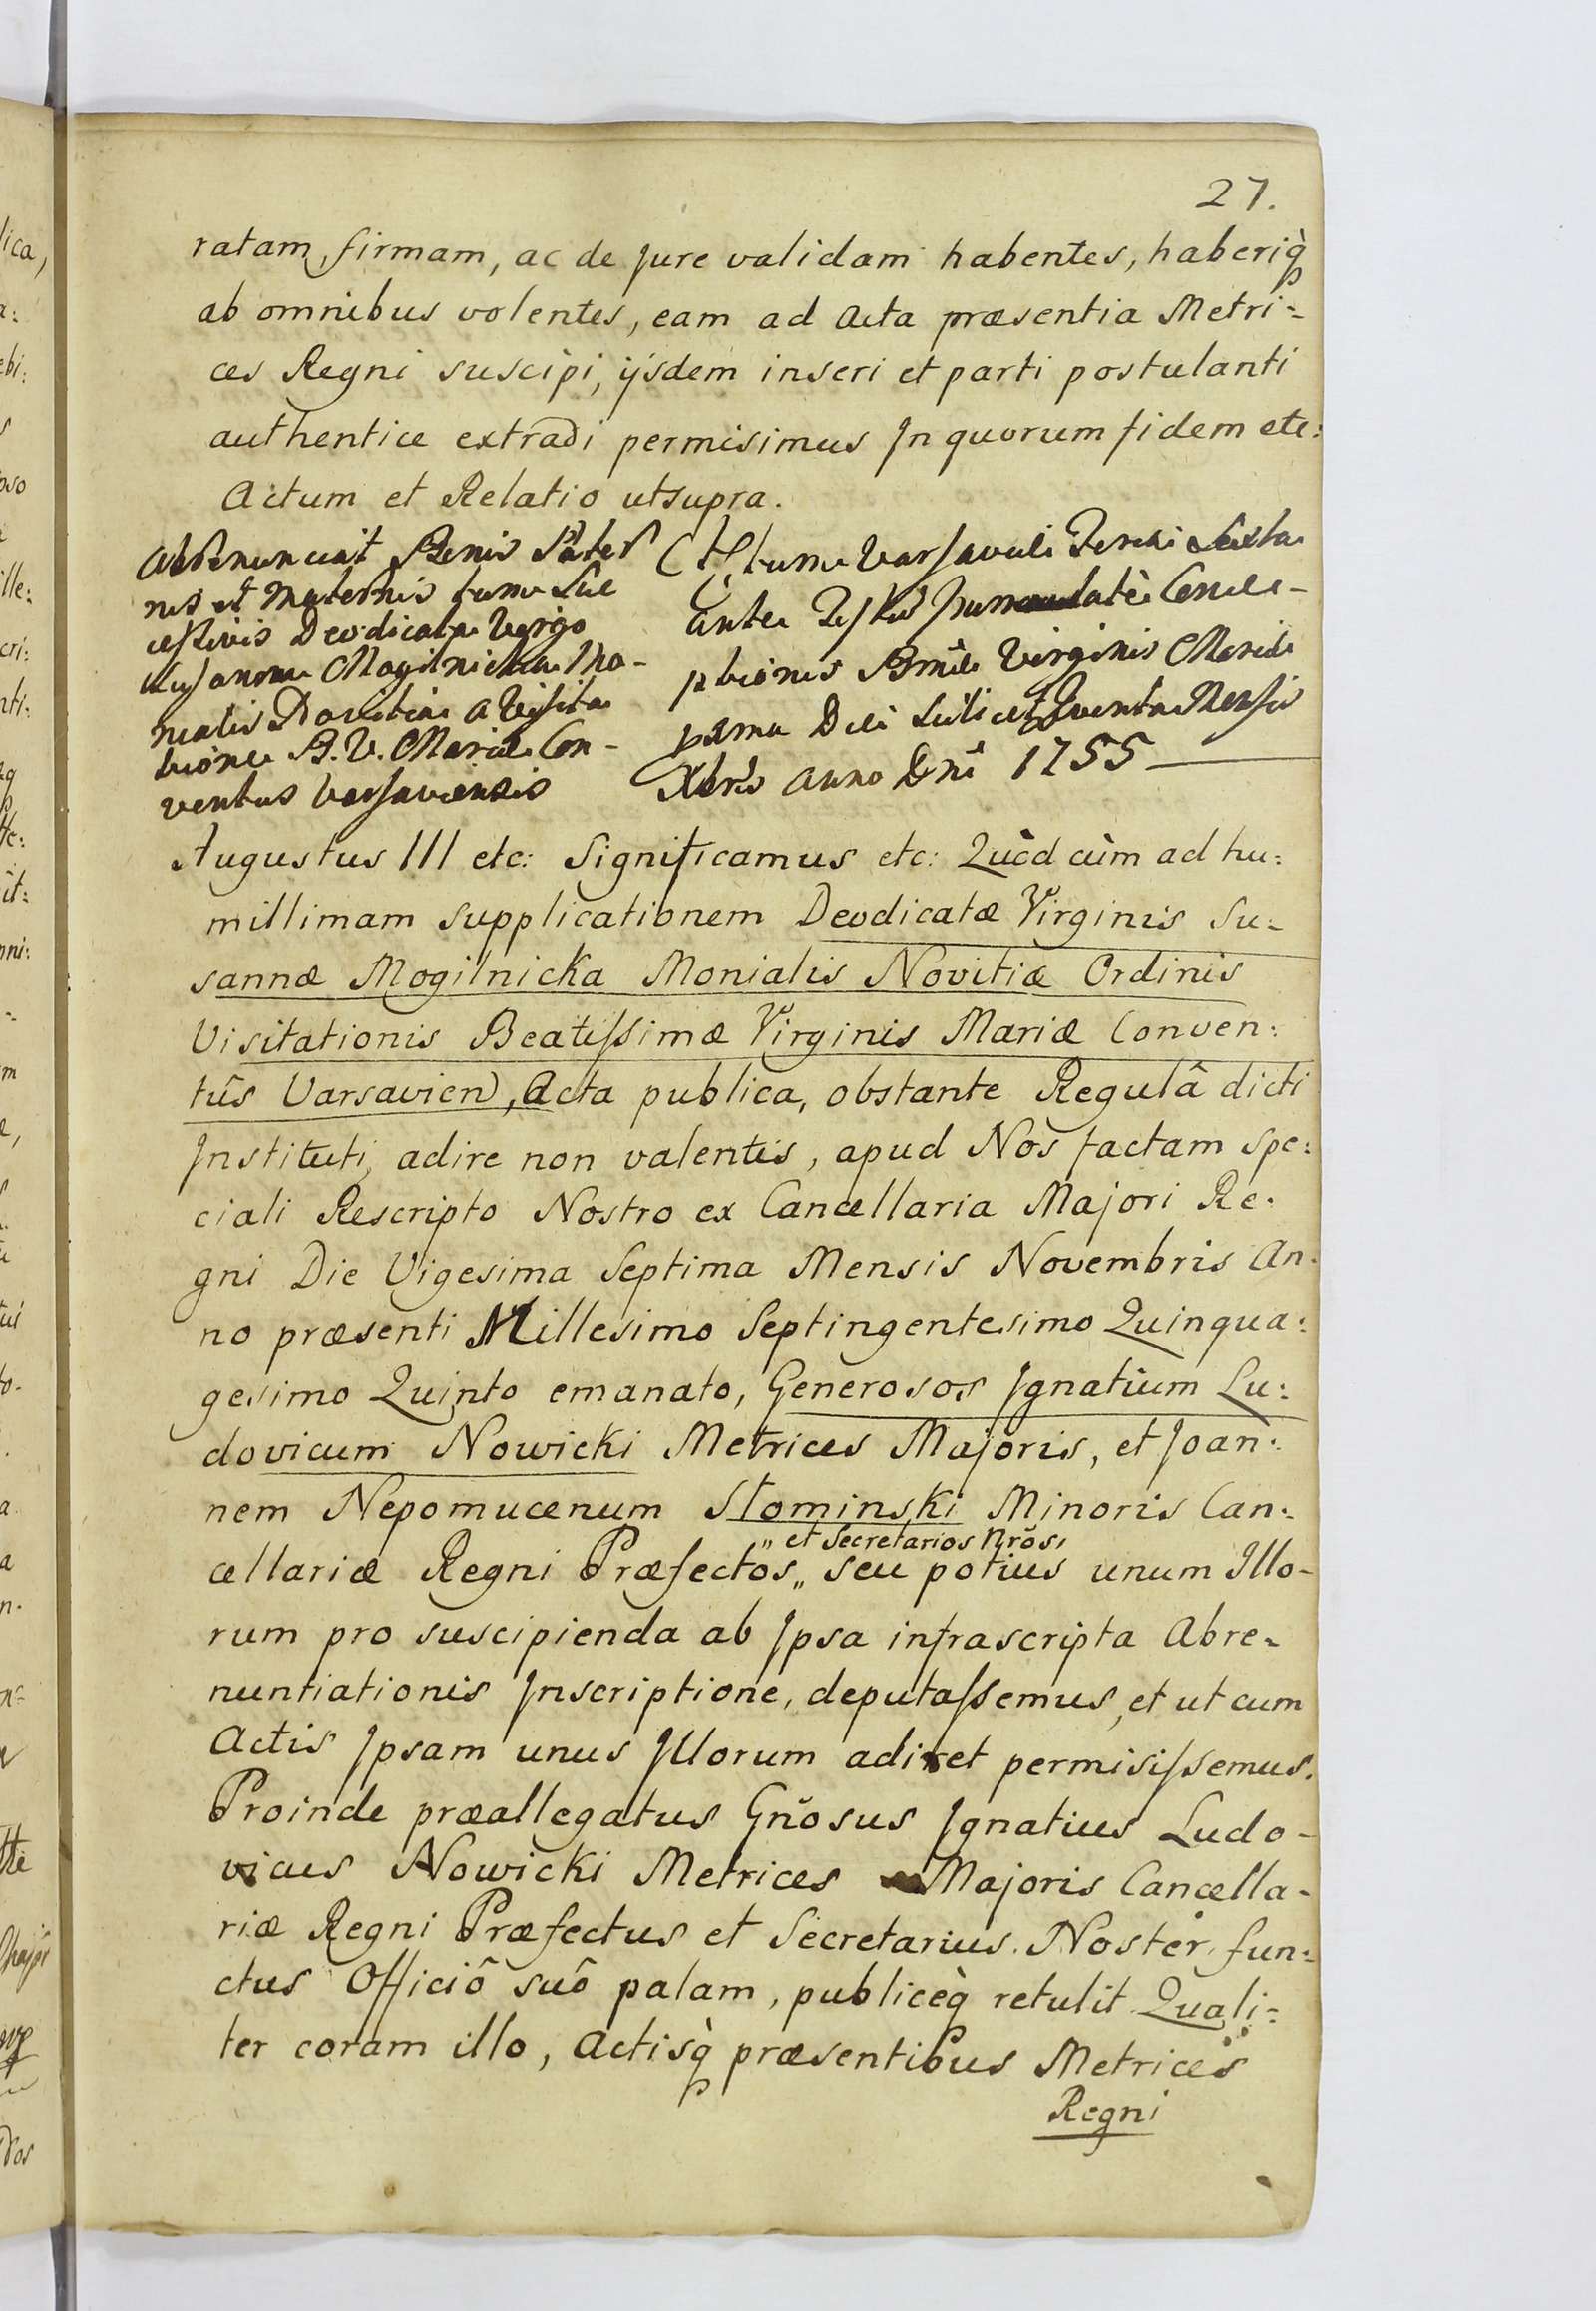 27.
ratam, firmam, ac de Jure validam habentes, haberiq̀
ab omnibus volentes, eam ad Acta præsentia Metri=
ces Regni suscipi, ijsdem inseri et parti postulanti
authentice extradi permisimus Jn quorum fidem etc:
Actum et Relatio utsupra.
Abrenunciat Bonis Pater
nis et Maternis tum Suc
cessivis Deodicata Virgo
Susanna Mogilnicka Mo-
nialis Novitia a Visita
tione B. V. Mariæ Con-
ventus Varsaviensis
Actum Varsaviæ Feria Sexta
ante Festum Immaculatæ Conce-
ptionis Bmæ Virginis Mariæ
prima Die scilicet Quinta Mensis
Xbris Anno Dni 1755
Augustus III etc: Significamus etc: Quòd cùm ad hu:
millimam supplicationem Deodicatæ Virginis Su=
sannæ Mogilnicka Monialis Novitiæ Ordinis
Visitationis Beatissimæ Virginis Mariæ Conven:
tûs Varsavien, Acta publica, obstante Regulâ dicti
Jnstituti, adire non valentis, apud Nos factam spe:
ciali Rescripto Nostro ex Cancellaria Majori Re:
gni Die Vigesima Septima Mensis Novembris An:
no præsenti Millesimo Septingentesimo Quinqua:
gesimo Quinto emanato, Generosos Jgnatium Lu:
dovicum Nowicki Metrices Majoris, et Joan:
nem Nepomucenum Słominski Minoris Can:
„ et Secretarios Nrõs,
cellariæ Regni Præfectos„ seu potius unum Illo-
rum pro suscipienda ab Jpsa infrascripta Abre=
nuntiationis Jnscriptione, deputassemus, et ut cum
Actis Jpsam unus Jllorum adiret permisissemus.
Proinde præallegatus Gnõsus Jgnatius Ludo-
vicus Nowicki Metrices Majoris Cancella-
riæ Regni Præfectus et Secretarius Noster, fun=
ctus Officiô suô palam, publiceq̀ retulit Quali=
ter coram illo, Actisq̀ præsentibus Metrices
Regni